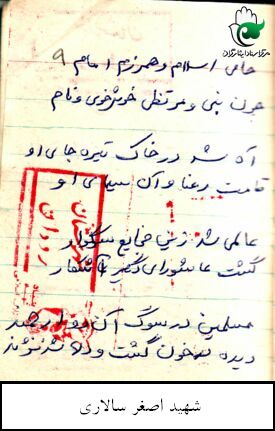 حامی اسلام و همرزم امام ۹
چون نبی و مرتضی خوشخوی و نام
آه شد در خاک تیره جای او
قامت رعنا و آن سیمای او
عالمی شد زین ضایع سوگوار
گشت عاشورای دیگر آشکار
مسلمین در سوگ آن
دیده پرخون گشت و دلها شد نژند
شهید اصغر سالاری